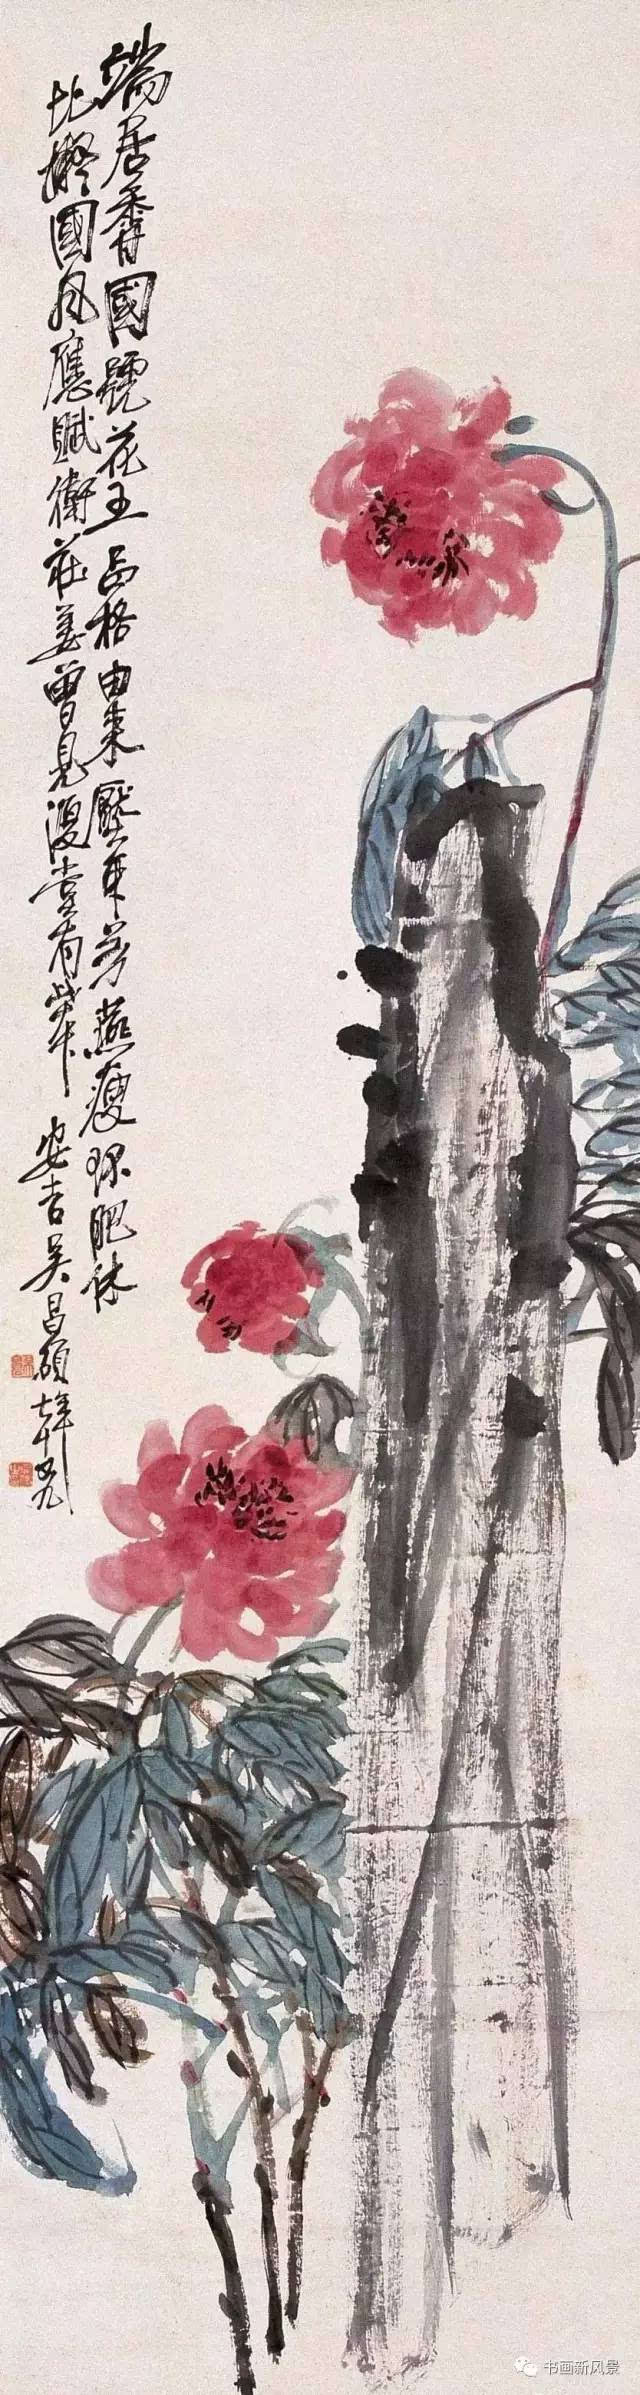 端居香國號花王品格由來壓眾芳燕瘦環肥休
比擬國風應賦衛莊姜曾見復堂有紫本
安吉吳昌碩年七十九
书画新风景